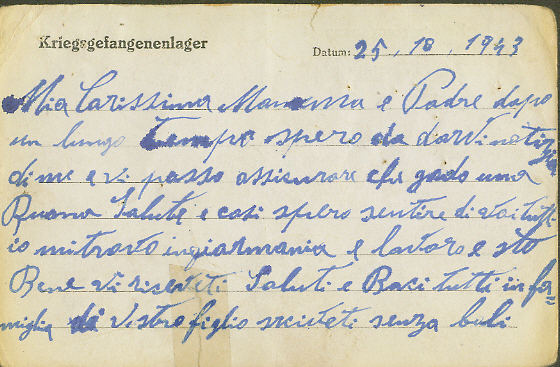 Kriegsgefangenenlager
Datum: 25, 10, 1943
Mia Carissima Mamma e Padre dopo
un lungo tempo spero da darvi notizza
di me e vi passo assicurare che gado una
Buona Salute e casi spero sentire di voi tutti
io mi trovo in giarmania e lavoro e sto
Bene vi riceveti Saluti e Baci tutti in fa=
miglia Vostro figlio
senza